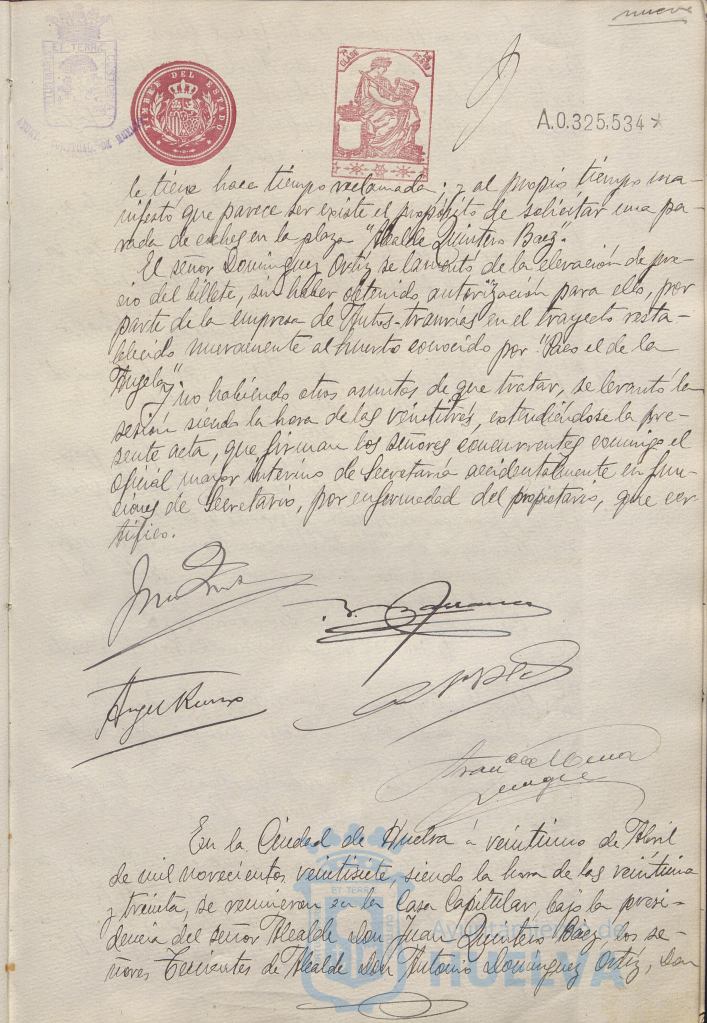 nueve
ET TERRÆ
TIMBRE DEL ESTADO
CLASE
A.0.325,534*
le tiene hace tiempo reclamada; y al propio tiempo ma-
nifestó que parece ser existe el propósito de solicitar una pa-
rada de coches en la plaza "Alcalde Quintero Baez".
El señor Dominguez Ortiz se lamentó de la elevación de pre-
cio del billete, sin haber obtenido autorización para ello, por
parte de la empresa de Autos-tranvias en el trayecto resta-
blecido nuevamente al huerto conocido por "Paco el de la
Angela"
Y no habiendo otros asuntos de que tratar, se levantó la
sesión siendo la hora de las veintitres, extendiéndose la pre-
sente acta, que firman los señores concurrentes conmigo el
oficial mayor interino de Secretaría accidentalmente en fun-
ciones de Secretario, por enfermedad del propietario, que cer-
tifico.
Angel
En la Ciudad de Huelva á veintiuno de Abril
de mil novecientos veintisiete, siendo la hora de las veintiuna
y treinta, se reunieron en la Casa Capitular, bajo la presi-
dencia del señor Alcalde Don Juan Quintero Báez, los se-
ñores Tenientes de Alcalde Don Antonio Dominguez Ortiz, Don
ET TERRÆ
Ayuntamiento de
HUELVA